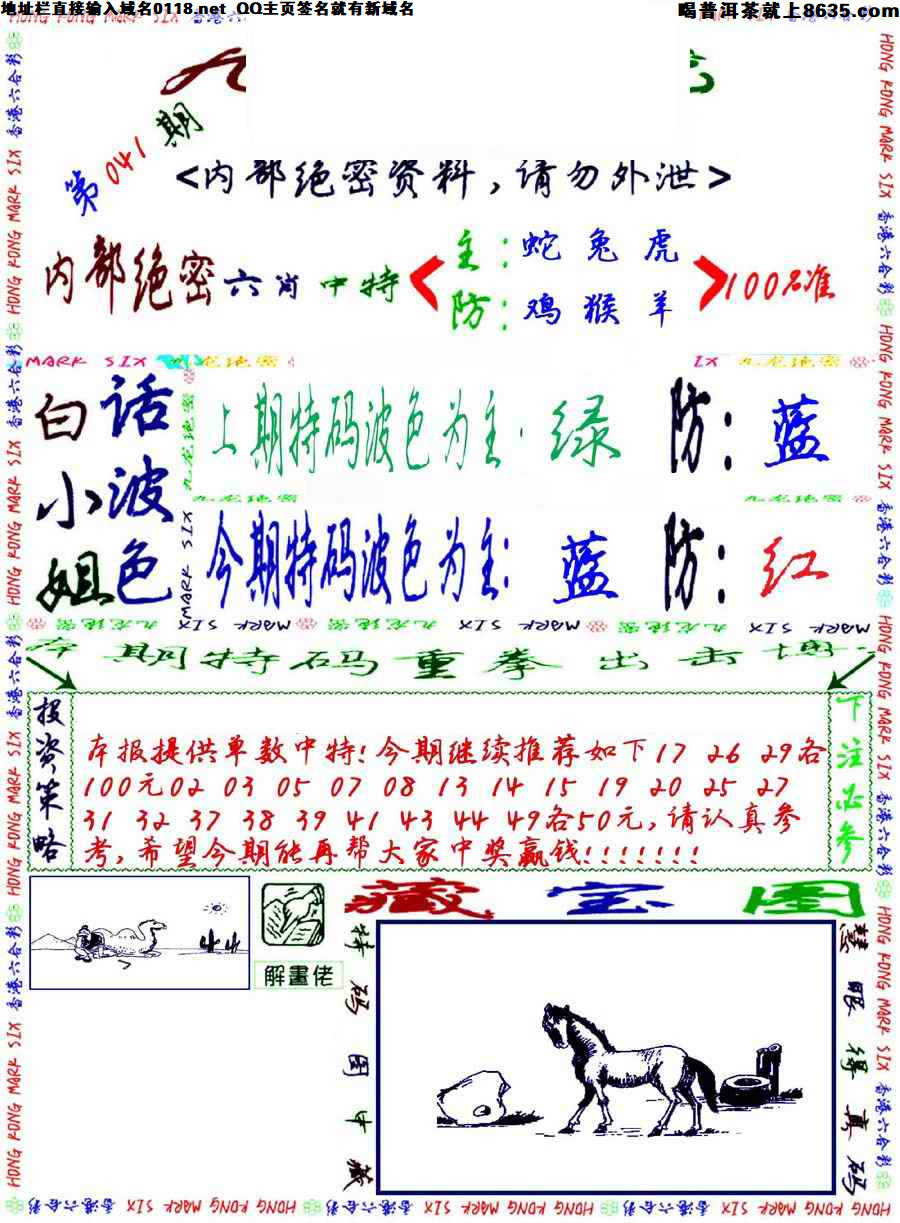 地址栏直接输入域名0118.net QQ主页签名就有新域名
喝普洱茶就上8635.com
HONG KONG MARK SIX 香港六合彩
第041期
<内部绝密资料,请勿外泄>
内部绝密六肖中特
主:蛇兔虎
防:鸡猴羊
100%准
MARK SIX 九龙绝密
IX 九龙绝密
白话
小波
姐色
上期特码波色为主:绿 防:蓝
九龙绝密
今期特码波色为主:蓝 防:红
MARK SIX 九龙绝密 MARK SIX 九龙绝密 MARK SIX 九龙绝密 MARK SIX
本期特码重拳出击
投资策略
本报提供单数中特!今期继续推荐如下17 26 29各
100元02 03 05 07 08 13 14 15 19 20 25 27
31 32 37 38 39 41 43 44 49各50元,请认真参
考,希望今期能再帮大家中奖赢钱!!!!!!!
下注必参
解畫佬
藏宝图
特码图中藏
慧眼得真码
HONG KONG MARK SIX 香港六合彩